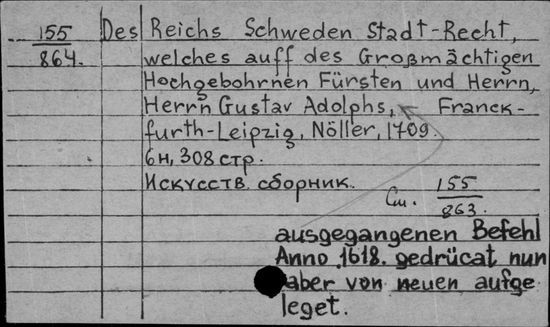 155
864.
Des Reichs Schweden Stadt-Recht,
welches auff des Großmächtigen
Hochgebohrnen Fürsten und Herrn,
Herrn Gustav Adolphs, Franck-
furth-Leipzig, Nöller, 1709.
6н, 308 стр.
Искусств. сборник.
См. 155
863.
ausgegangenen Befehl
Anno 1618. gedrücat nun
aber von neuen aufge
leget.